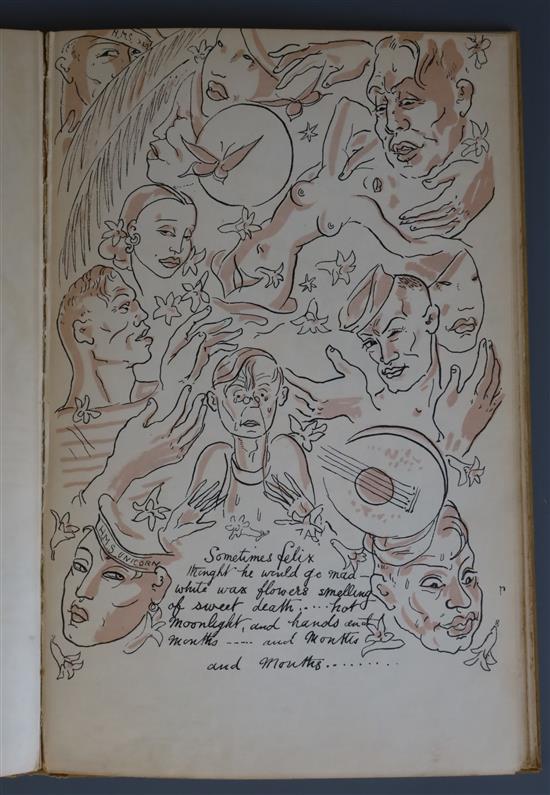 H.M.S.
H.M.S UNICORN
Sometimes felix
thinght he would go mad -
white wax flowers smelling
of sweet death..... hot
Moonlight, and hands and
mouths ---- and Mouths
and Mouths.........